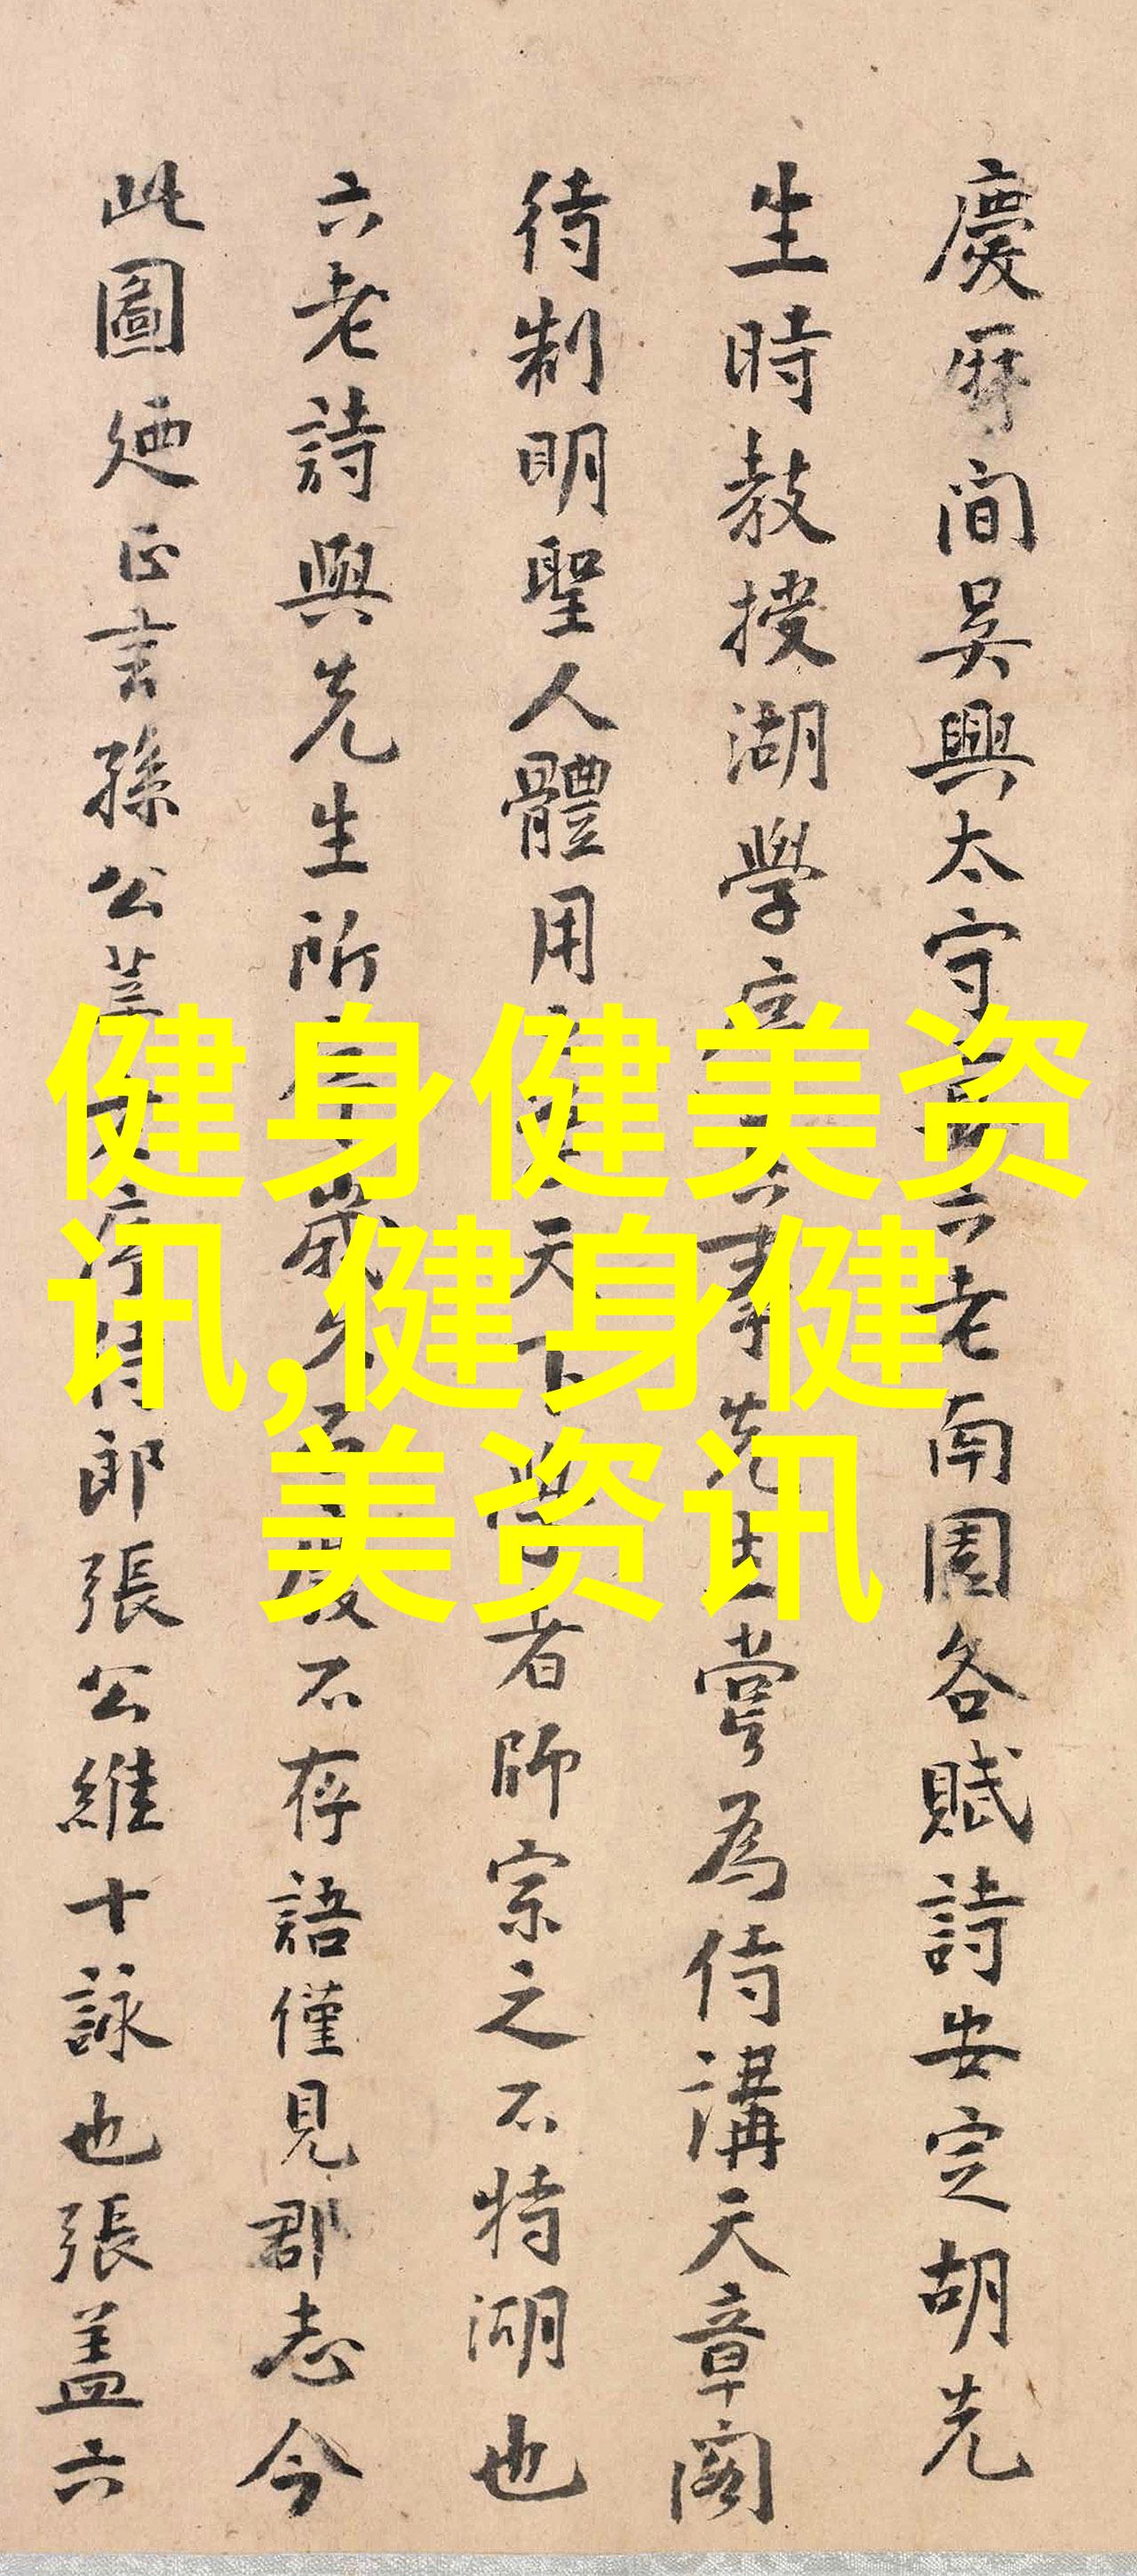 慶曆間吳興太守六老南園各賦詩安定胡先
生時教授湖學先生嘗為侍講天章閣
待制明聖人體用天下學者師宗之不特湖也
六老詩與先生所歲久不存語僅見郡志今
此圖廼正言孫公侍郎張公維十詠也張盖六
健身健美资
讯,健身健
美资讯